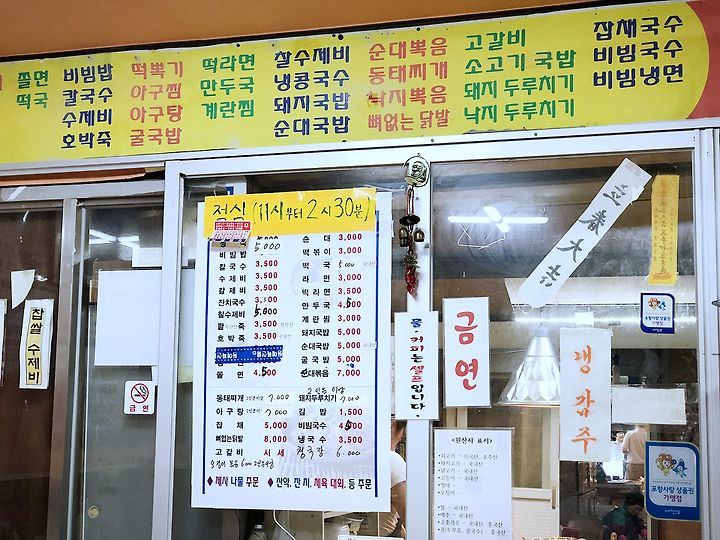 쫄면
떡국
비빔밥
칼국수
수제비
호박죽
떡뽁기
아구찜
아구탕
굴국밥
떡라면
만두국
계란찜
찰수제비
냉콩국수
돼지국밥
순대국밥
순대뽁음
동태찌개
낙지뽁음
뼈없는 닭발
고갈비
소고기 국밥
돼지 두루치기
낙지 두루치기
잡채국수
비빔국수
비빔냉면
점심(11시부터 2시30분)
5,000
비빔밥
칼국수 3,500
수제비 3,500
칼제비 3,500
잔치국수 3,500
찰수제비 5,000
팥죽 3,500
호박죽 3,500
쫄면 4,500
순대 3,000
떡볶이 3,000
떡국 5,000 국내산
라면 3,000
떡라면 3,500
만두국 4,500
계란찜 3,000
돼지국밥 5,000
순대국밥 5,000
굴국밥 5,000
순대볶음 7,000
2인분 이상
동태찌개 7,000
아구탕 7,000
잡채 5,000
뼈없는닭발 8,000
고갈비 시세
돼지두루치기 7,000
김밥 1,500
비빔국수 4,500
냉국수 3,500
청국장 6,000
◆ 제사 나물 주문 ◆ 산악, 잔치, 체육 대회, 등 주문
찹쌀 수제비
금연
물·커피는 셀프입니다.
금연
立春大吉
냉감주
포항사랑 상품권
가맹점
<원산지 표시>
포항사랑 상품권
가맹점